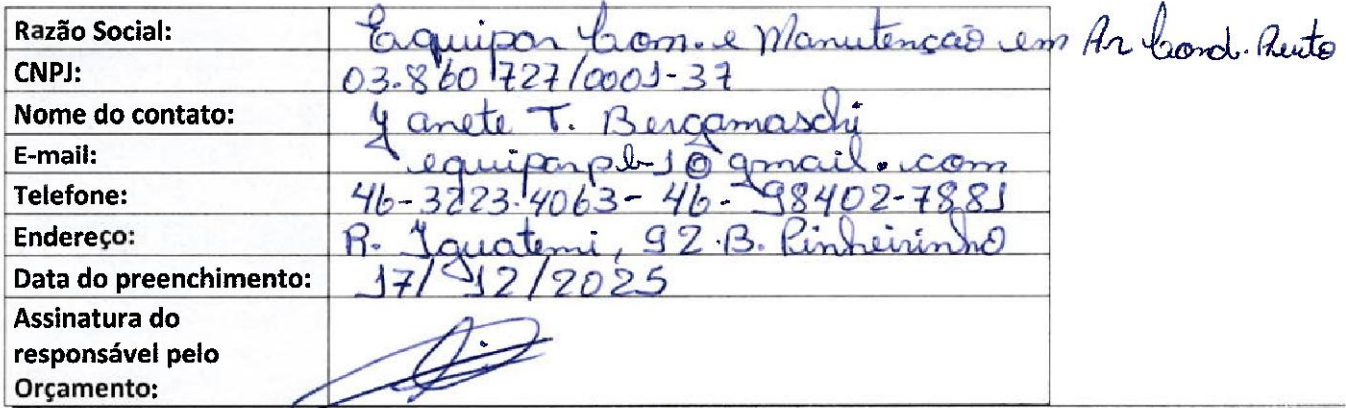 Razão Social: Equipar Com. e Manutenção em Ar Cond.
CNPJ: 03.860727/0001-37
Nome do contato: Janete T. Bergamaschi
E-mail: equiparpb1@gmail.com
Telefone: 46-3223.4063- 46- 98402-7881
Endereço: R. Iguatemi, 92.B. Pinheirinho
Data do preenchimento: 17/12/2025
Assinatura do
responsável pelo
Orçamento: